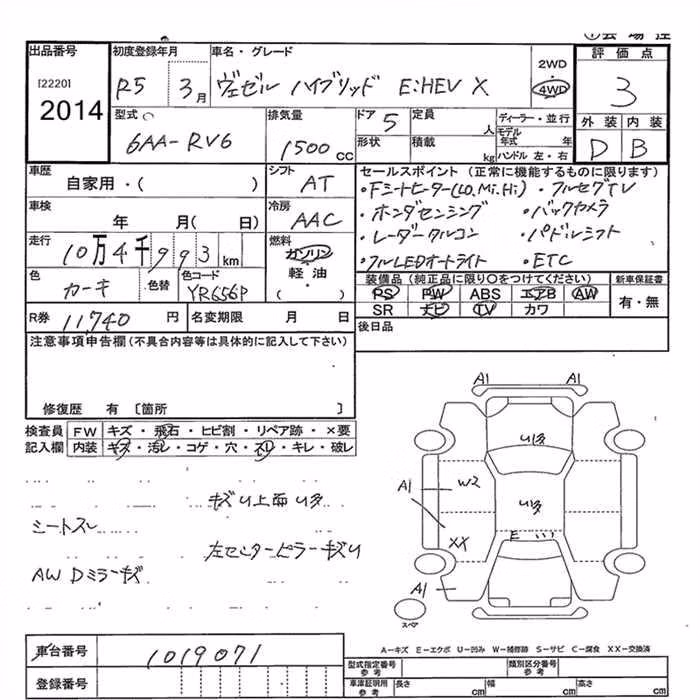 出品番号 初度登録年月 車名・グレード 2WD・4WD 評価点
[2220] 2014 R5 3月 ヴェゼル ハイブリッド E:HEV X 3
型式 排気量 ドア 定員 ディーラー・並行 外装 内装
6AA-RV6 1500cc 5 人 モデル年式 年 D B
形状 積載 kg ハンドル 左・右
車歴 シフト セールスポイント (正常に機能するものに限ります)
自家用・( ) AT ・Fシートヒーター(LO.Mi.Hi) ・フルセグTV
車検 冷房 ・ホンダセンシング ・バックカメラ
年 月( 日) AAC ・レーダークルコン ・パドルシフト
走行 燃料 ・フルLEDオートライト ・ETC
10万4千993km ガソリン 軽油 ( )
色 色替 色コード 装備品 (純正品に限り○をつけてください) 新車保証書
カーキ YR656P PS PW ABS エアB AW 有・無
SR ナビ TV カワ
R券 11,740円 名変期限 月 日 後日品
注意事項申告欄(不具合内容等は具体的に記入して下さい)
修復歴 有 〔箇所 〕
検査員 FW キズ・飛石・ヒビ割・リペア跡・×要
記入欄 内装 キズ・汚レ・コゲ・穴・スレ・キレ・破レ
A1 A1
U多
A1 W2
U多
E
XX
A1
スペア
キズU上面U多
シートスレ
左センターピラーキズU
AW Dミラーキズ
A-キズ E-エクボ U-凹み W-補修跡 S-サビ C-腐食 XX-交換済
車台番号 1019071
型式指定番号 参考 類別区分番号 参考
登録番号
車庫証明用 参考 長さ cm 幅 cm 高さ cm